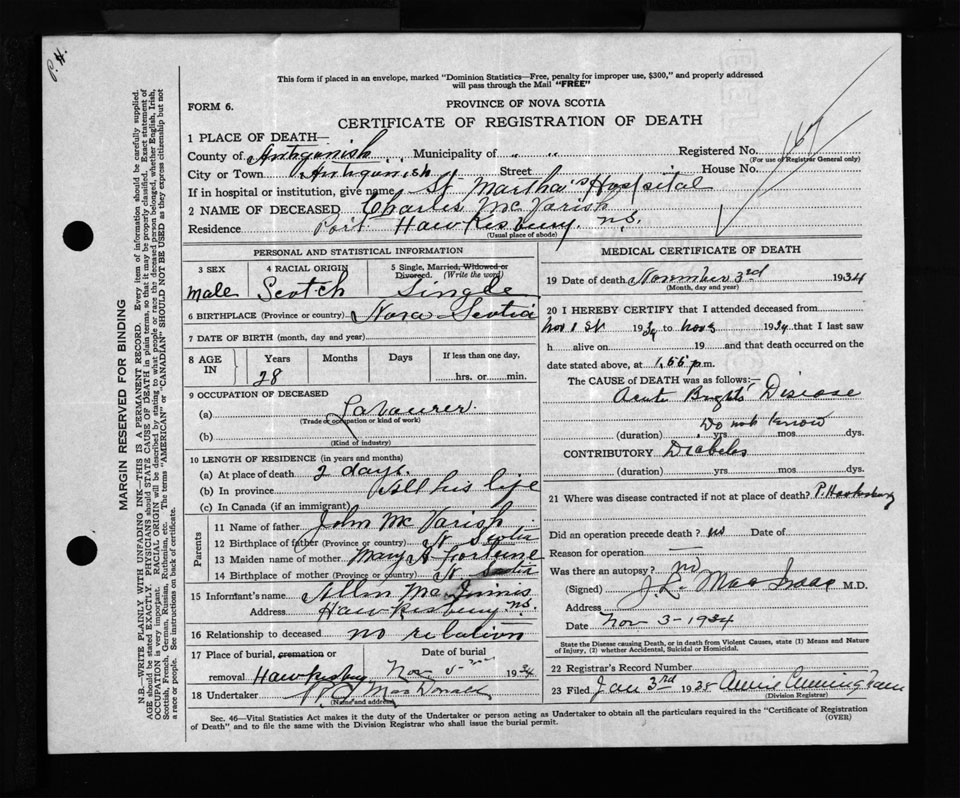 P. H.
This form if placed in an envelope, marked "Dominion Statistics—Free, penalty for improper use, $300," and properly addressed
will pass through the Mail "FREE"
FORM 6.
PROVINCE OF NOVA SCOTIA
CERTIFICATE OF REGISTRATION OF DEATH
167
1 PLACE OF DEATH—
County of Antigonish Municipality of " " Registered No.
(For use of Registrar General only)
City or Town Antigonish Street House No.
If in hospital or institution, give name St Martha's Hospital
2 NAME OF DECEASED Charles Mc Varish
Residence Port Hawkesbury n.s.
(Usual place of abode)
PERSONAL AND STATISTICAL INFORMATION
3 SEX 4 RACIAL ORIGIN 5 Single, Married, Widowed or
Divorced. (Write the word)
male Scotch Single
6 BIRTHPLACE (Province or country) Nova Scotia
7 DATE OF BIRTH (month, day and year)
8 AGE IN Years Months Days If less than one day,
28 hrs. or min.
9 OCCUPATION OF DECEASED
(a) Labourer
(Trade or occupation or kind of work)
(b)
(Kind of industry)
10 LENGTH OF RESIDENCE (in years and months)
(a) At place of death 2 days.
(b) In province All his life
(c) In Canada (if an immigrant)
Parents
11 Name of father John Mc Varish
12 Birthplace of father (Province or country) N. Scotia
13 Maiden name of mother Mary A
14 Birthplace of mother (Province or country) N. Scotia
15 Informant's name Allan Mac Innis
Address Hawkesbury n.s.
16 Relationship to deceased no relation
17 Place of burial, cremation or Date of burial
removal Hawkesbury Nov 5 1934
18 Undertaker MacDonald
(Name and address)
MEDICAL CERTIFICATE OF DEATH
19 Date of death November 3rd 1934
(Month, day and year)
20 I HEREBY CERTIFY that I attended deceased from
Nov 1 st 1934 to nov 3 1934 that I last saw
h alive on 19 and that death occurred on the
date stated above, at 1.55 p.m.
The CAUSE OF DEATH was as follows:—
Acute Brights' Disease
Do not know
(duration) yrs mos. dys.
CONTRIBUTORY Diabetes
(duration) yrs mos. dys.
21 Where was disease contracted if not at place of death? P. Hawkesbury
Did an operation precede death? no Date of
Reason for operation —
Was there an autopsy? no
(Signed) J. L. MacIsaac M.D.
Address
Date Nov 3 - 1934
State the Disease causing Death, or in death from Violent Causes, state (1) Means and Nature
of Injury, (2) whether Accidental, Suicidal or Homicidal.
22 Registrar's Record Number
23 Filed Jan 3rd 1935 Annie Cunningham
(Division Registrar)
Sec. 46—Vital Statistics Act makes it the duty of the Undertaker or person acting as Undertaker to obtain all the particulars required in the "Certificate of Registration
of Death" and to file the same with the Division Registrar who shall issue the burial permit. (OVER)
MARGIN RESERVED FOR BINDING
N.B.—WRITE PLAINLY WITH UNFADING INK—THIS IS A PERMANENT RECORD. Every item of information should be carefully supplied.
AGE should be stated EXACTLY. PHYSICIANS should STATE CAUSE OF DEATH in plain terms, so that it may be properly classified. Exact statement of
OCCUPATION is very important. RACIAL ORIGIN will be described by stating to what people or race the deceased person belonged, whether English, Irish,
Scottish, French, German, Russian, Ruthenian, etc. The terms "AMERICAN" or "CANADIAN" SHOULD NOT BE USED as they express citizenship but not
a race or people. See instructions on back of certificate.